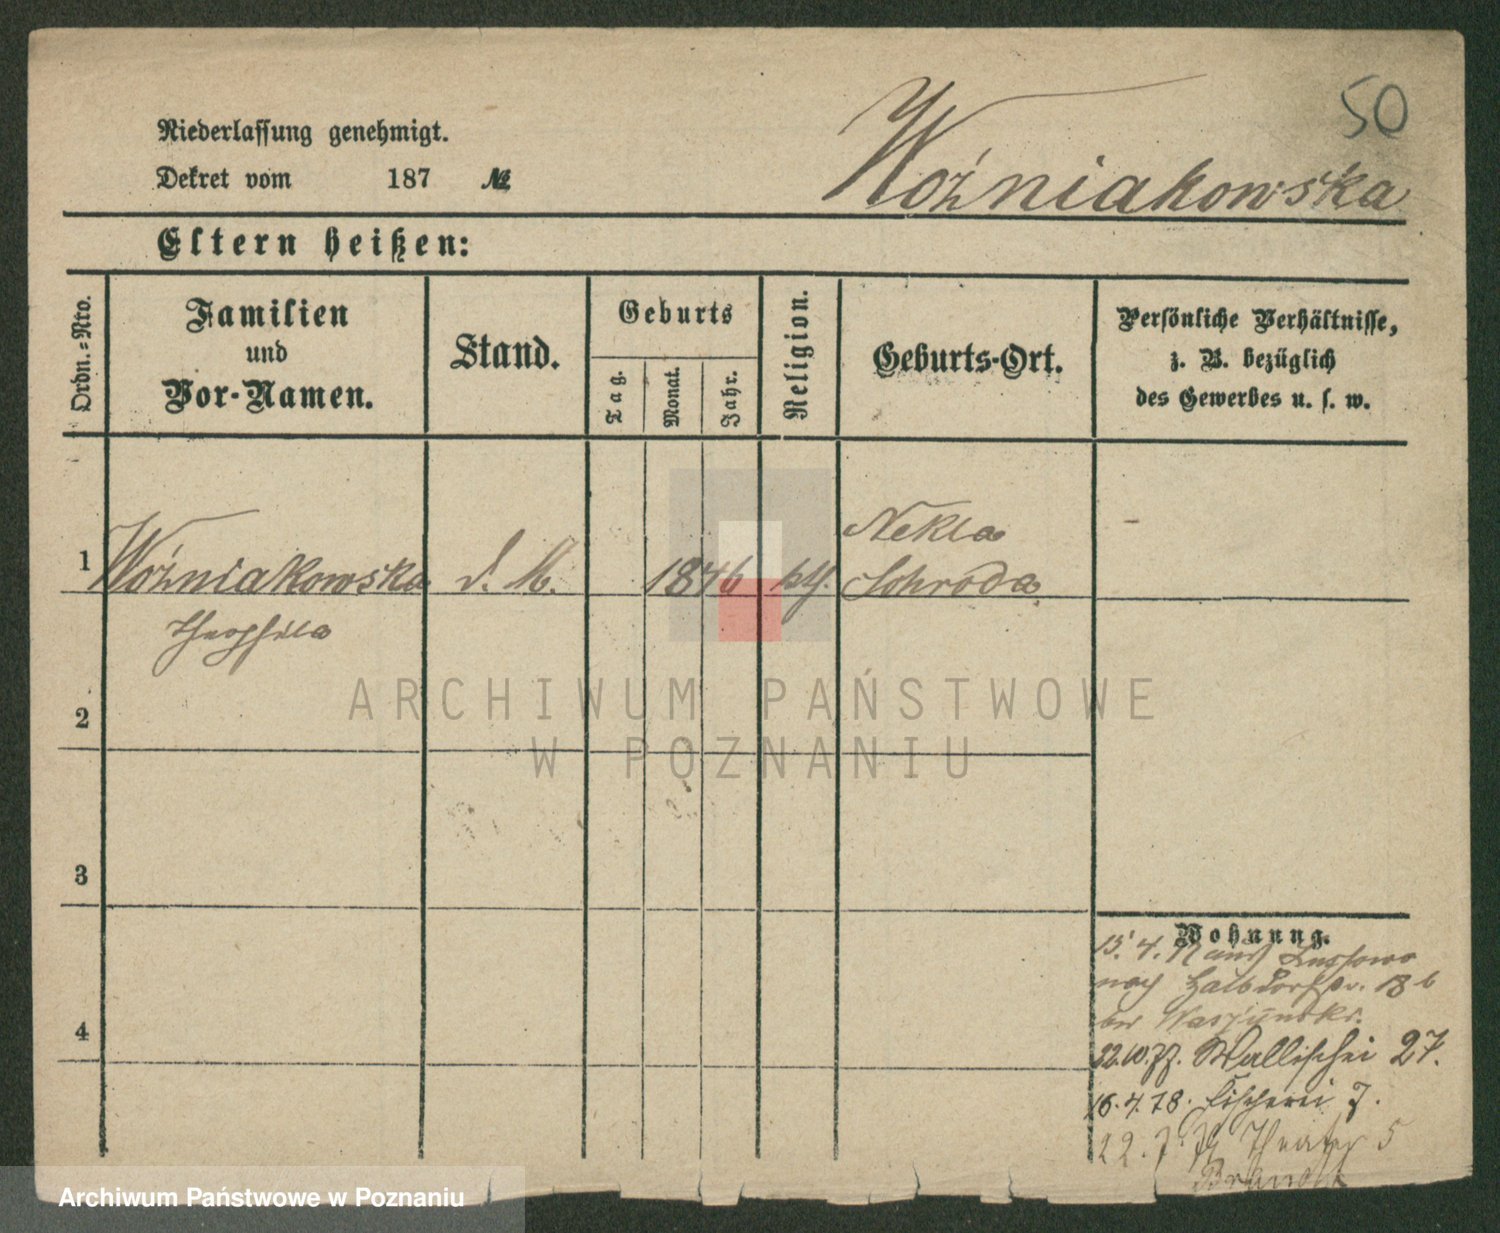 50
Niederlassung genehmigt.
Dekret vom 187 №
Woźniakowska
Eltern heißen:
Ordn.=Nro.
Familien
und
Vor-Namen.
Stand.
Geburts
Tag.
Monat.
Jahr.
Religion.
Geburts-Ort.
Persönliche Verhältnisse,
z. B. bezüglich
des Gewerbes u. s. w.
1
Woźniakowska
Theophila
d. M.
1846
kth.
Nekla
Schroda
2
3
4
Wohnung.
15. 4.
nach Halbdorfstr.
bei
22.10.77. Wallischei 27.
16.4.78. Fischerei 7.
22. 7. Theater 5
Brandt
ARCHIWUM PAŃSTWOWE
W POZNANIU
Archiwum Państwowe w Poznaniu